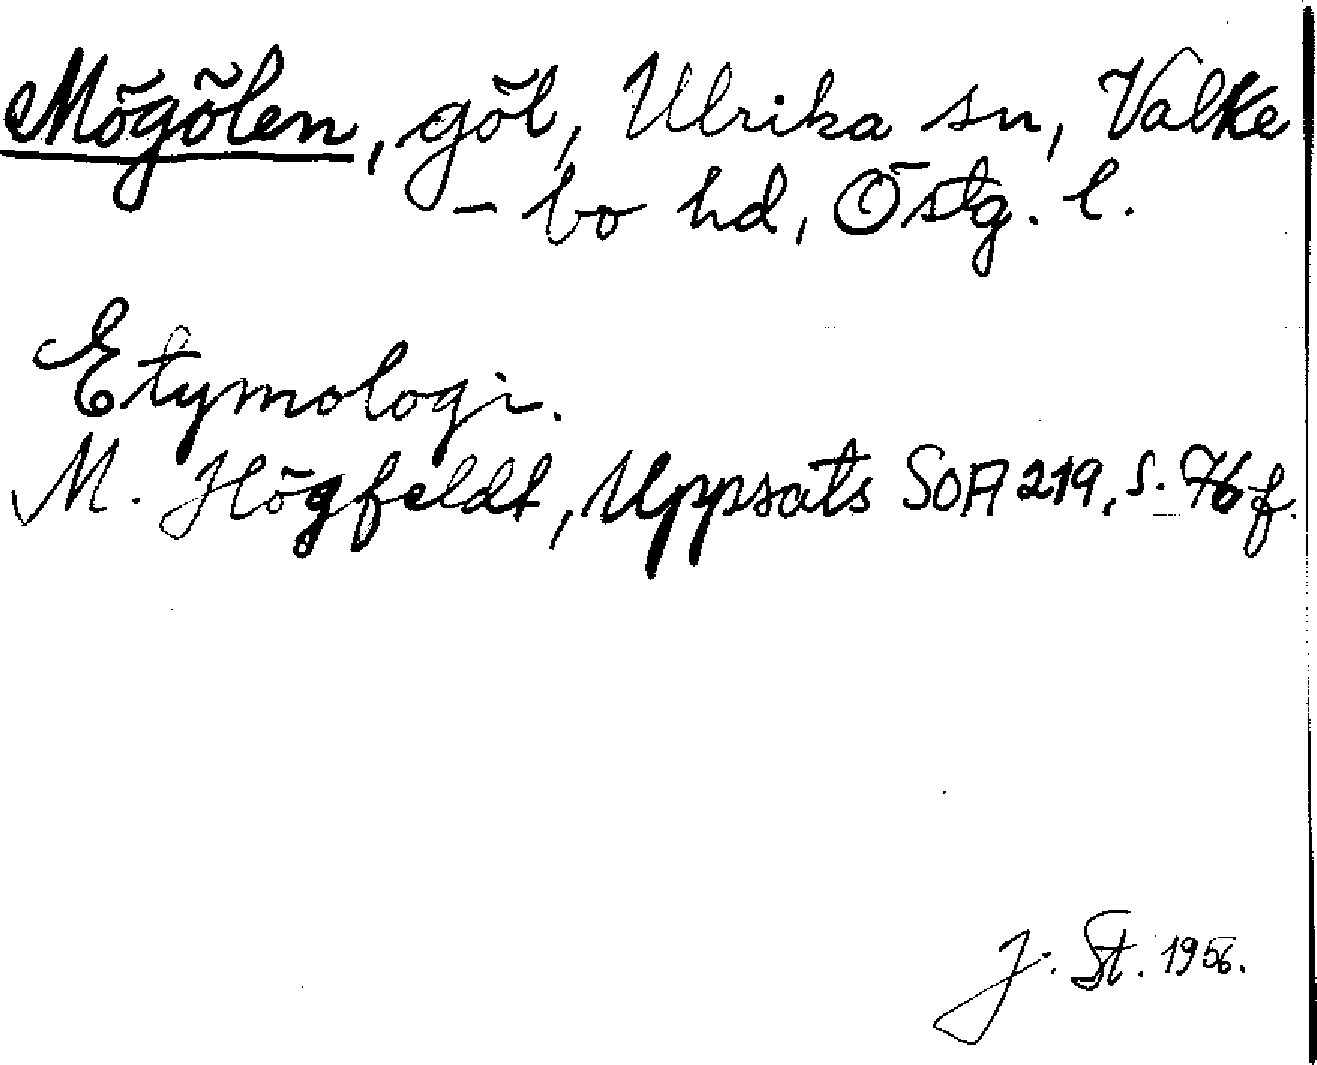 Mögölen, göl, Ulrika sn, Valke
- bo hd, Östg. l.
Etymologi.
M. Högfeldt, Uppsats SOA 219, s. 76 f.
J. St. 1956.